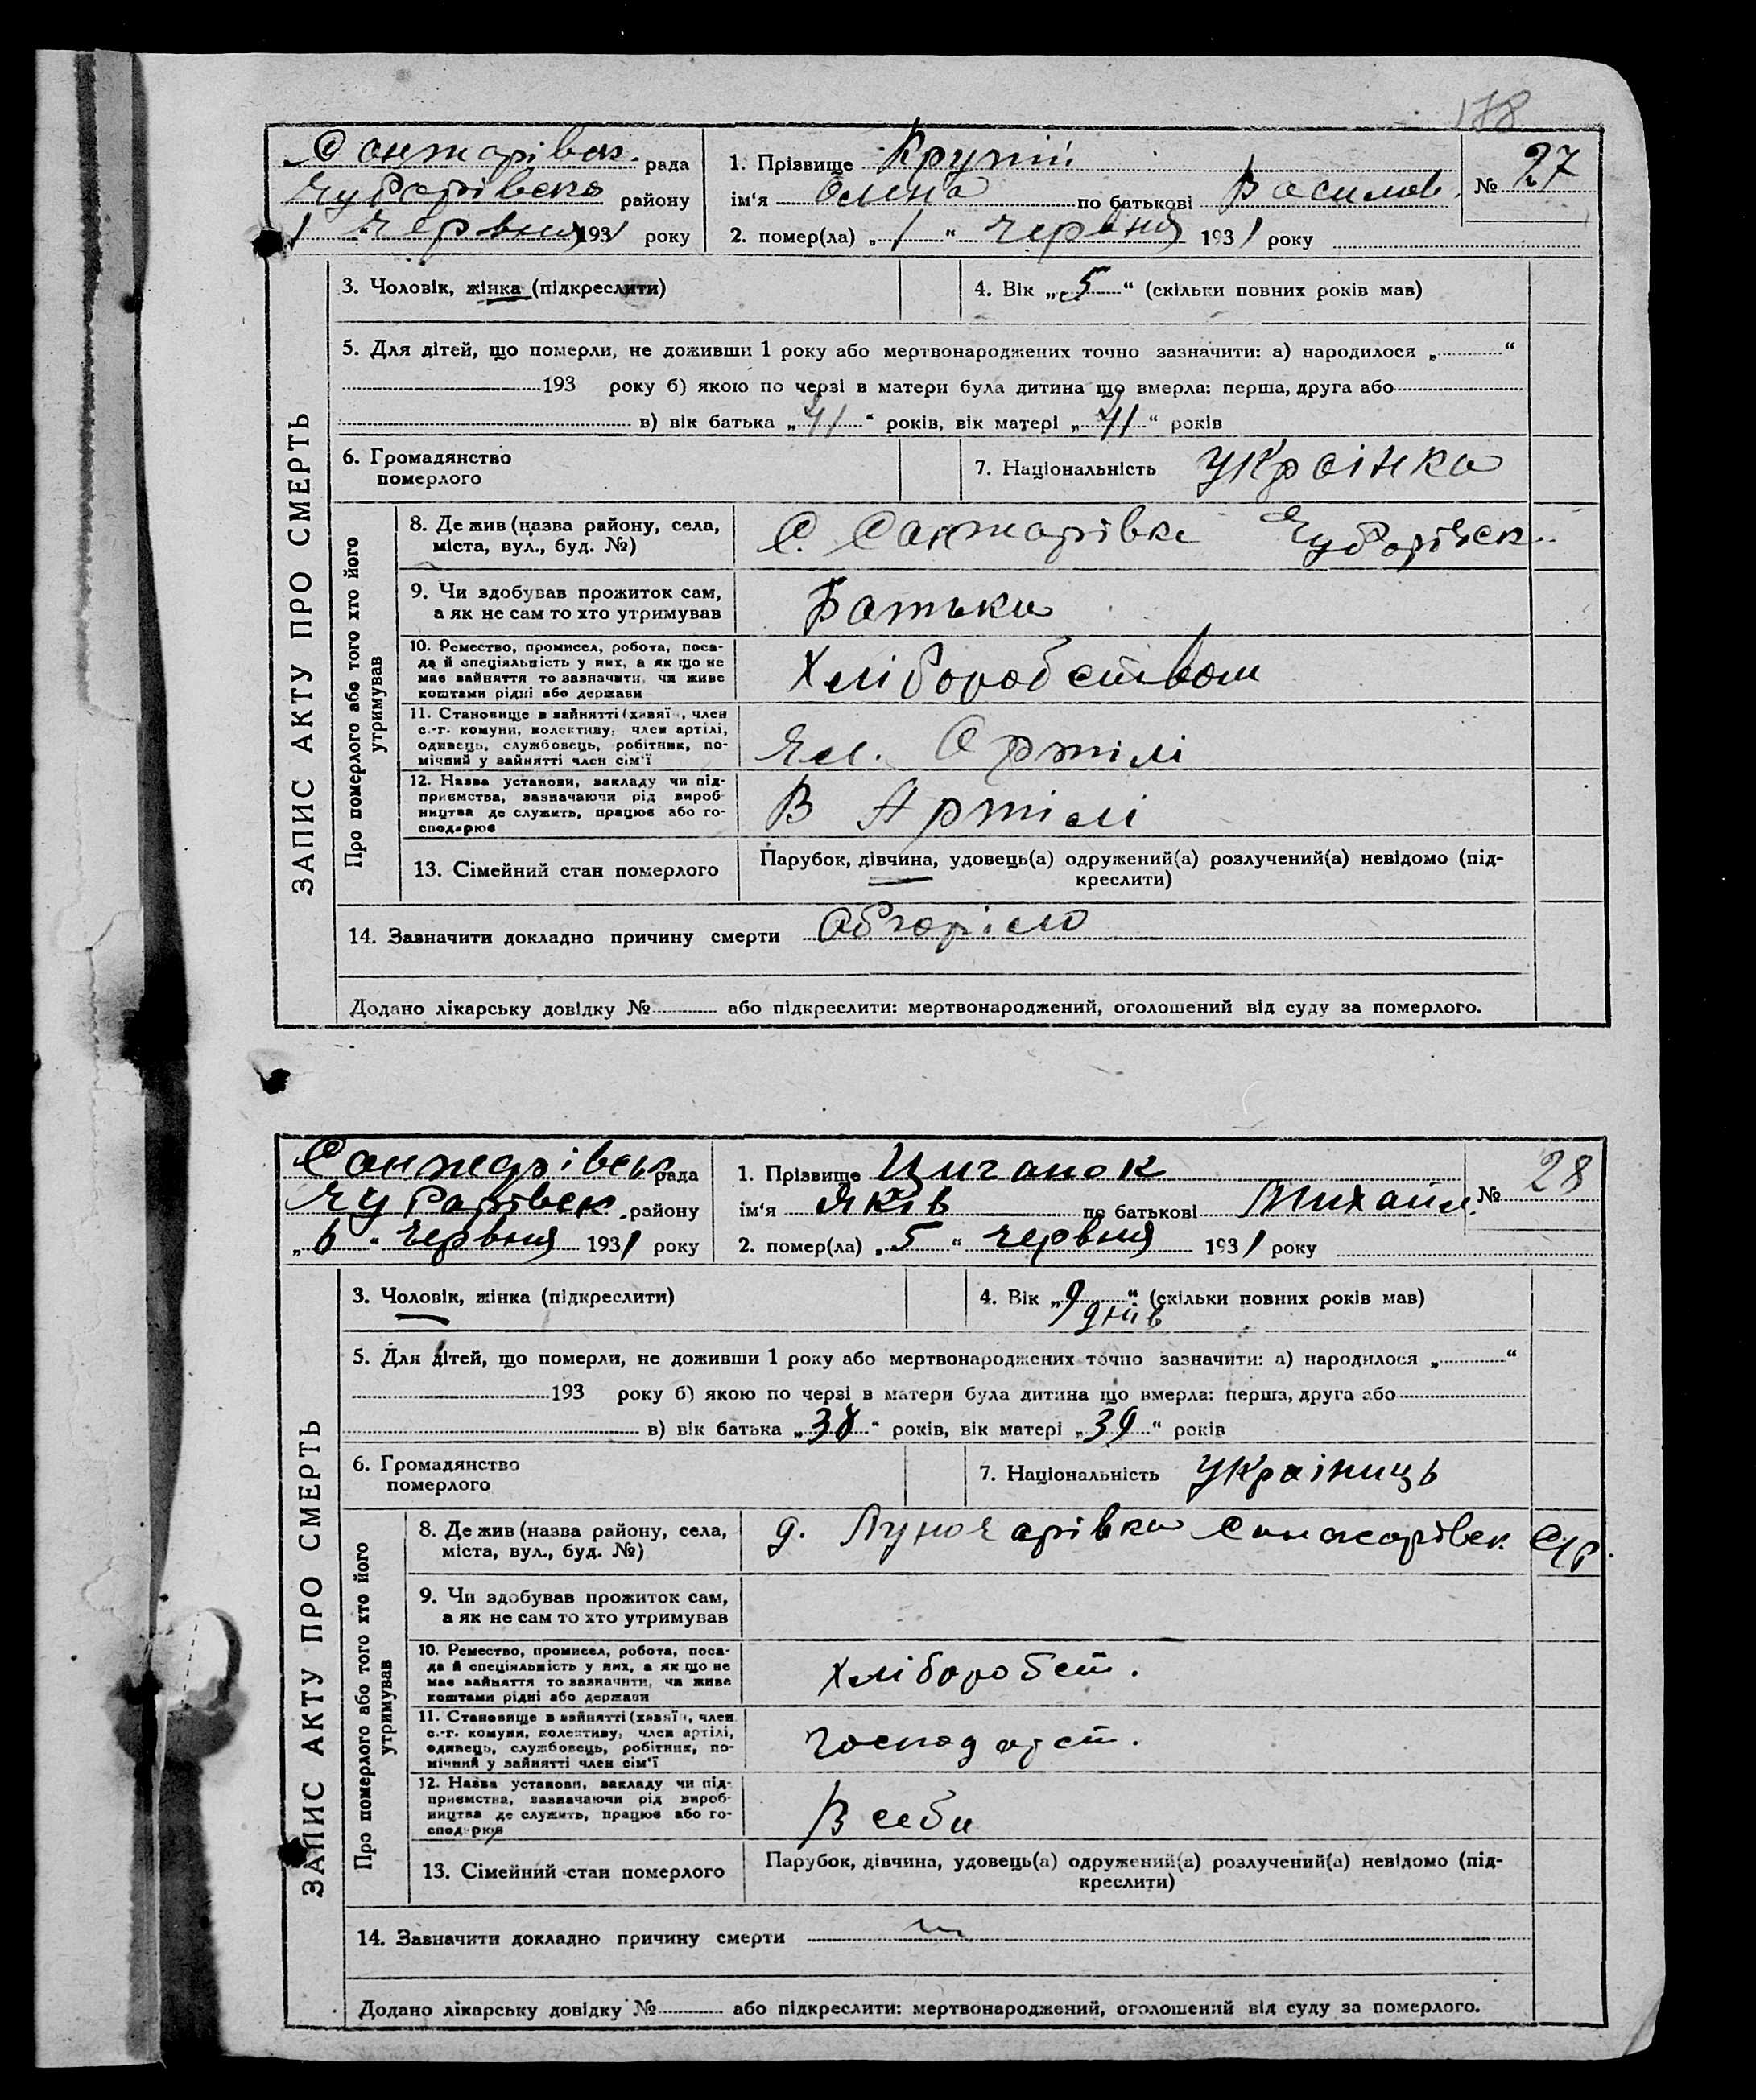 178
Сонжарівськ. рада
Чубарівського району
1 Червня 1931 року
1. Прізвище Крупій
ім'я Олена по батькові Василів.
2. помер(ла) „1“ червня 1931 року
№ 27
ЗАПИС АКТУ ПРО СМЕРТЬ
3. Чоловік, жінка (підкреслити)
4. Вік „5“ (скільки повних років мав)
5. Для дітей, що померли, не доживши 1 року або мертвонароджених точно зазначити: а) народилося „ “
193 року б) якою по черзі в матери була дитина що вмерла: перша, друга або
в) вік батька „41“ років, вік матері „41“ років
6. Громадянство
померлого
7. Національність Українка
Про померлого або того хто його
утримував
8. Де жив (назва району, села,
міста, вул., буд. №)
С. Санжарівка Чубарівськ.
9. Чи здобував прожиток сам,
а як не сам то хто утримував
Батьки
10. Ремество, промисел, робота, поса-
да й спеціяльність у них, а як що не
має зайняття то зазначити, чи живе
коштами рідні або держави
Хліборобством
11. Становище в зайнятті (хазяїн, член
с.-г. комуни, колективу, член артілі,
одинець, службовець, робітник, по-
мічний у зайнятті член сім'ї
Чл. Артілі
12. Назва установи, закладу чи під-
приємства, зазначаючи рід вироб-
ництва де служить, працює або го-
сподарює
В Артілі
13. Сімейний стан померлого
Парубок, дівчина, удовець(а) одружений(а) розлучений(а) невідомо (під-
креслити)
14. Зазначити докладно причину смерти Обгоріло
Додано лікарську довідку № або підкреслити: мертвонароджений, оголошений від суду за померлого.
Санжарівськ рада
Чубарівськ. району
„6“ червня 1931 року
1. Прізвище Циганок
ім'я Яків по батькові Михайл.
2. помер(ла) „5“ червня 1931 року
№ 28
ЗАПИС АКТУ ПРО СМЕРТЬ
3. Чоловік, жінка (підкреслити)
4. Вік „9“ (скільки повних років мав)
днів
5. Для дітей, що померли, не доживши 1 року або мертвонароджених точно зазначити: а) народилося „ “
193 року б) якою по черзі в матери була дитина що вмерла: перша, друга або
в) вік батька „38“ років, вік матері „39“ років
6. Громадянство
померлого
7. Національність Українць
Про померлого або того хто його
утримував
8. Де жив (назва району, села,
міста, вул., буд. №)
д. Луночарівка Санжарівск С/Р.
9. Чи здобував прожиток сам,
а як не сам то хто утримував
10. Ремество, промисел, робота, поса-
да й спеціяльність у них, а як що не
має зайняття то зазначити, чи живе
коштами рідні або держави
Хліборобст.
11. Становище в зайнятті (хазяїн, член
с.-г. комуни, колективу, член артілі,
одинець, службовець, робітник, по-
мічний у зайнятті член сім'ї
господарст.
12. Назва установи, закладу чи під-
приємства, зазначаючи рід вироб-
ництва де служить, працює або го-
сподарює
В себи
13. Сімейний стан померлого
Парубок, дівчина, удовець(а) одружений(а) розлучений(а) невідомо (під-
креслити)
14. Зазначити докладно причину смерти
Додано лікарську довідку № або підкреслити: мертвонароджений, оголошений від суду за померлого.